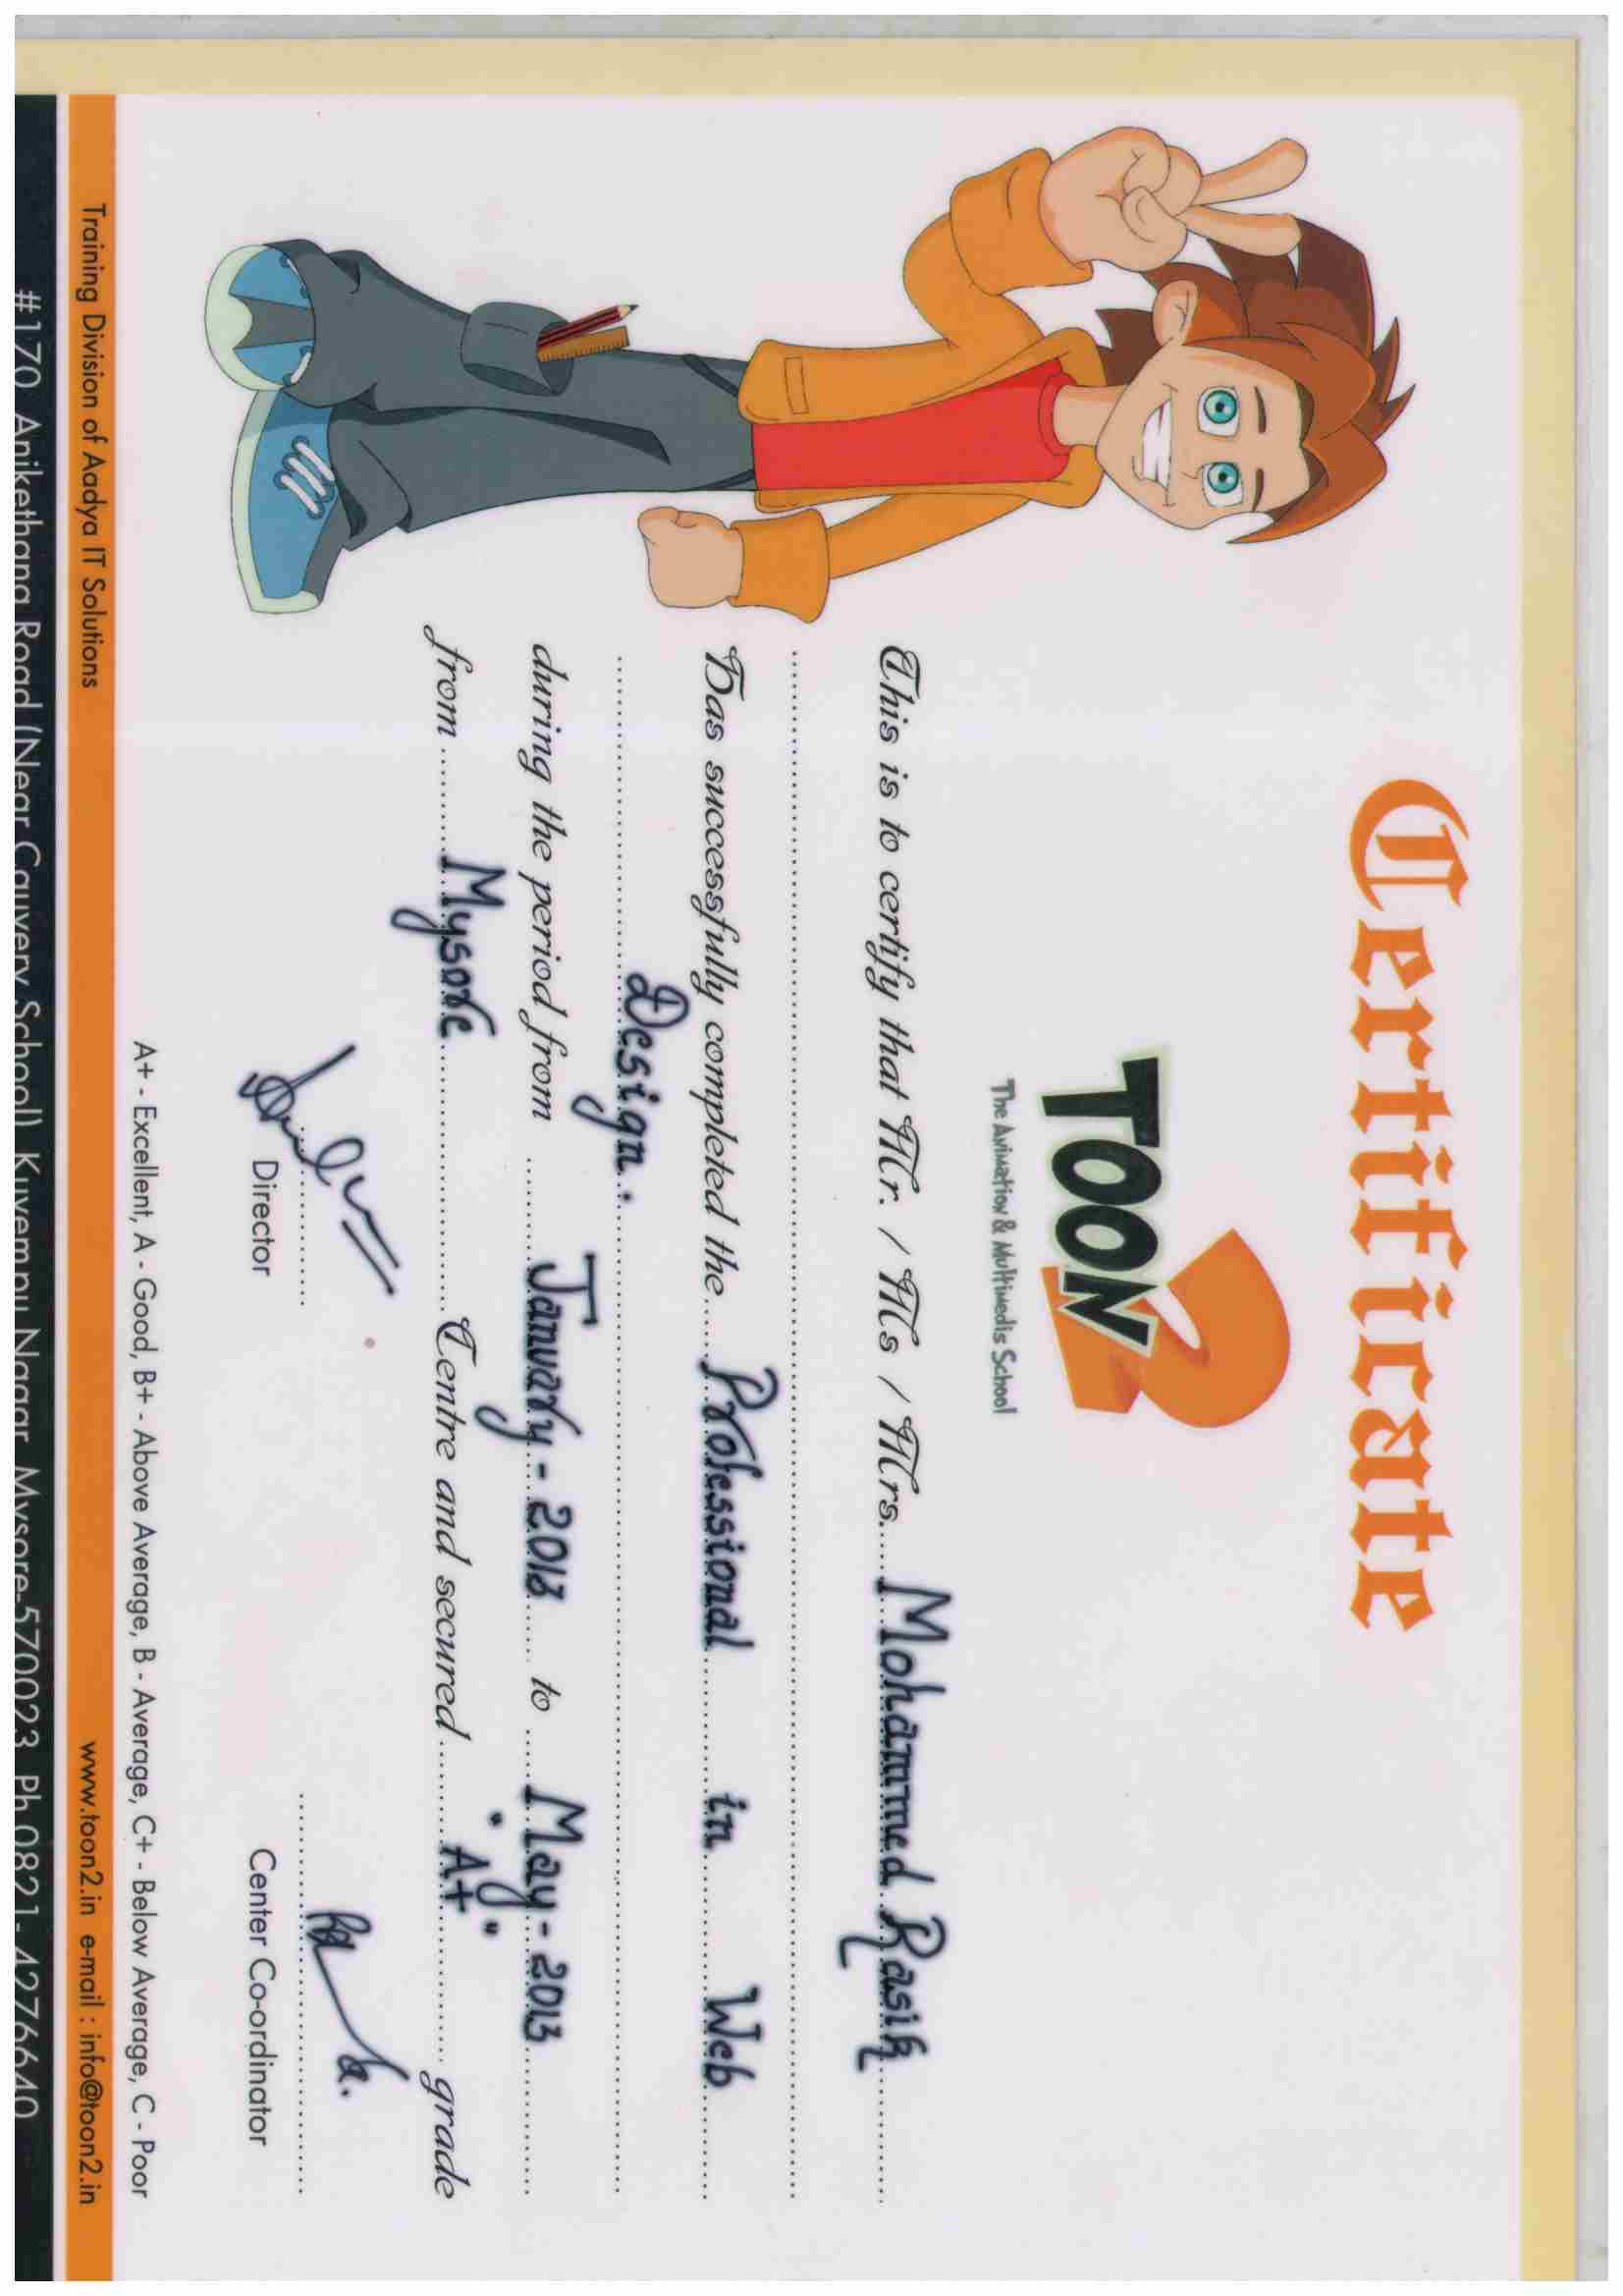 Certificate
TOON2
The Animation & Multimedis School
This is to certify that Mr. / Ms / Mrs. Mohammed Rasik
Has successfully completed the Professional in Web
Design.
during the period from January - 2013 to May - 2013
from Mysore Centre and secured "A+" grade
Director Center Co-ordinator
A+ - Excellent, A - Good, B+ - Above Average, B - Average, C+ - Below Average, C - Poor
Training Division of Aadya IT Solutions www.toon2.in e-mail : info@toon2.in
#170 Anikethana Road (Near Cauvery School) Kuvempu Nagar Mysore-570023 Ph 0821- 4276640